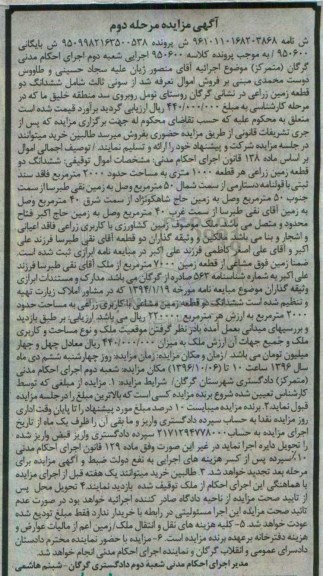 آگهی مزایده مرحله دوم
ش نامه ۹۶۱۰۱۱۰۱۶۸۲۰۳۸۶۸ ش پرونده ۹۵۰۹۹۸۲۱۶۳۵۰۰۵۳۸ ش بایگانی
۹۵۰۶۰۰ / به موجب پرونده کلاسه ۹۵۰۶۰۰ اجرایی شعبه دوم اجرای احکام مدنی
گرگان (متمرکز) موضوع اجرائیه آقای منصور ژیان علیه سجاد حسینی و طاووس
دوست محمدی مبنی بر فروش اموال تعرفه شد از سوی ثالث شامل ششدانگ دو
قطعه زمین زراعی در نشانی گرگان روستای تومل روبروی سد منطقه خلیق ما که در
مرحله کارشناسی به مبلغ ۴۴۰/۰۰۰/۰۰۰ ریال ارزیابی گردید برآورد قیمت شده است
متعلق به محکوم علیه که حسب تقاضای محکوم له جهت برگزاری مزایده که پس از
جری تشریفات قانونی از طریق مزایده حضوری بفروش میرسد طالبین خرید میتوانند
در جلسه مزایده شرکت و پیشنهاد خود را ارائه و تسلیم نمایند / توصیف اجمالی اموال
بر اساس ماده ۱۳۸ قانون اجرای احکام مدنی: مشخصات اموال توقیفی: ششدانگ دو
قطعه زمین زراعی هر قطعه ۱۰۰۰ متری به مساحت حدود ۲۰۰۰ مترمربع فاقد سند
ثبتی با قولنامه دستارمی از سمت شمال ۵۰ مترمربع وصل به زمین نقی طبرسا از سمت
جنوب ۵۰ مترمربع وصل به زمین حاج شاهکونژاد از سمت شرق ۴۰ مترمربع وصل
به زمین آقای نقی طبرسا از سمت غرب ۴۰ مترمربع وصل به زمین حاج اکبر فتاح
محدود و متصل می باشد ملک موصوف زمین کشاورزی با کاربری زراعی فاقد اعیانی
و اشجار و بنا می باشد مالکین و وثیقه گذاران دو قطعه آقای نقی طبرسا فرزند علی
اکبر و آقای علی اصغر کاظمی فرزند علی اکبر در مبایعه نامه ابرازی ثبت شده است.
ضمنا زمین فوق مشاعی از قطعه زمین ۷۰۰۰ مترمربع از ملک آقای نقی طبرسا فرزند
علی اکبر به شماره شناسنامه ۵۶۳ صادره از گرگان می باشد. مدارک و مستندات ابرازی
وثیقه گذاران موضوع مبایعه نامه مورخه ۱۳۹۴/۱/۱۹ که در مشاور املاک زیارت تهیه
و تنظیم شده است ششدانگ دو قطعه زمین مشاعی با کاربری زراعی به مساحت حدود
۲۰۰۰ مترمربع به ارزش هر مترمربع ۲۲۰۰۰۰ ریال می باشد. ارزیابی: بر طبق بازدید
و بررسیهای میدانی بعمل آمده بادر نظر گرفتن موقعیت ملک و نوع مساحت و کاربری
ملک و جمیع جهات آن ارزش ملک به میزان ۴۴۰/۰۰۰/۰۰۰ ریال معادل چهل و چهار
میلیون تومان می باشد / زمان و مکان مزایده: زمان مزایده: روز چهارشنبه ششم دی ماه
سال ۱۳۹۶ ساعت ۱۰ تا (۱۳۹۶/۱۰/۰۶) مکان مزایده: شعبه دوم اجرای احکام مدنی
(متمرکز) دادگستری شهرستان گرگان / شرایط مزایده: ۱. مزایده از مبلغی که توسط
کارشناس تعیین شده شروع برنده مزایده کسی است که بالاترین مبلغ را در جلسه مزایده
قبول نماید ۲. برنده مزایده میبایست ۱۰ درصد مبلغ مورد پیشنهاد را تا پایان وقت اداری
روز مزایده نقدا به حساب سپرده دادگستری واریز و ما بقی آن را ظرف یک ماه از تاریخ
اجرای مزایده به حساب ۲۱۷۱۲۹۴۷۷۸۰۰۰ سپرده دادگستری واریز قبض واریز شده
را تحویل دایره اجرا نماید در غیر این صورت وفق ماده ۱۲۹ قانون اجرای احکام مدنی
۱۰٪سپرده پس از کسر هزینه های اجرایی به نفع دولت ضبط و آگهی مزایده برای
مرحله بعد تجدید خواهد شد. ۳. طالبین خرید میتوانند یک هفته قبل از اجرای مزایده
با هماهنگی این اجرای احکام از ملک توقیف شده بازدید نمایند ۴. تحویل محل پس
از تایید صحت مزایده از ناحیه دادگاه صادر کننده اجرائیه خواهد بود در صورت عدم
تائید صحت مزایده این اجرا مسئولیتی در رابطه با خریدار ندارد فقط مبلغ تودیع شده
عودت خواهد شد. ۵- کلیه هزینه های نقل و انتقال ملک/ زمین اعم از مالیات عوارض و
هزینه دفترخانه برعهده برنده مزایده است. ۶- مزایده با حضور نماینده محترم دادستان
دادسرای عمومی و انقلاب گرگان و نماینده اجرای احکام مدنی انجام خواهد شد.
مدیر اجرای احکام مدنی شعبه دوم دادگستری گرگان - شبنم هاشمی